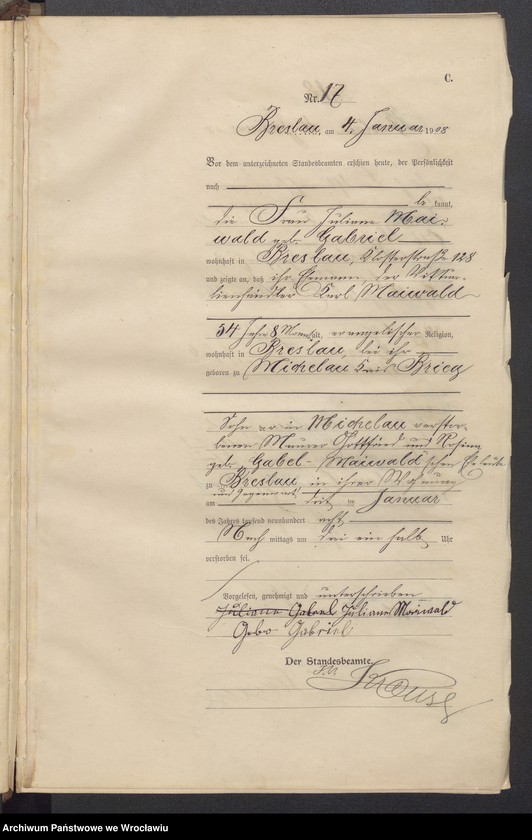 C.
Nr. 17
Breslau, am 4. Januar 1908
Vor dem unterzeichneten Standesbeamten erschien heute, der Persönlichkeit
nach
be kannt,
die Frau Juliane Mai-
wald geb. Gabriel
wohnhaft in Breslau, Klosterstraße 128
und zeigte an, daß ihr Ehemann, der Viktua-
lienhändler Karl Maiwald
54 Jahre 8 Monate alt, evangelischer Religion,
wohnhaft in Breslau, bei ihr
geboren zu Michelau Kreis Brieg
Sohn der in Michelau verstor-
benen Maurer Gottfried und Rosina
geb. Gabel- Maiwald'schen Eheleute
zu Breslau, in ihrer Wohnung
und Gegenwart
am ten Januar
des Jahres tausend neunhundert acht
Nach mittags um drei ein halb Uhr
verstorben sei.
Vorgelesen, genehmigt und unterschrieben
Juliane Maiwald
Gebo Gabriel
Der Standesbeamte.
Krause
Archiwum Państwowe we Wrocławiu